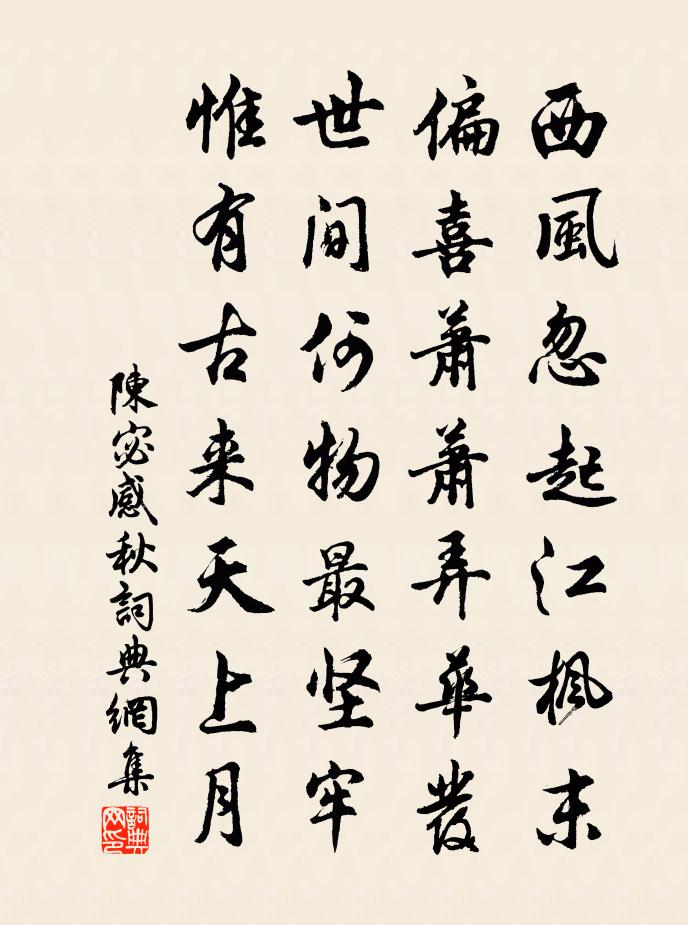 西風忽起江楓末
偏喜蕭蕭弄華髮
世間何物最堅牢
惟有古来天上月
陳宓感秋詞典網集
詞典網印